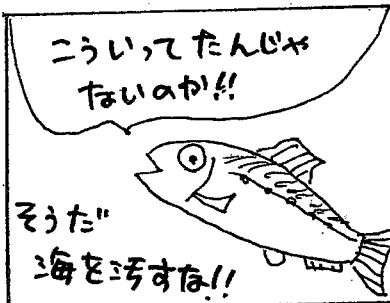 こういってたんじゃ
ないのか!!
そうだ
海を汚すな!!